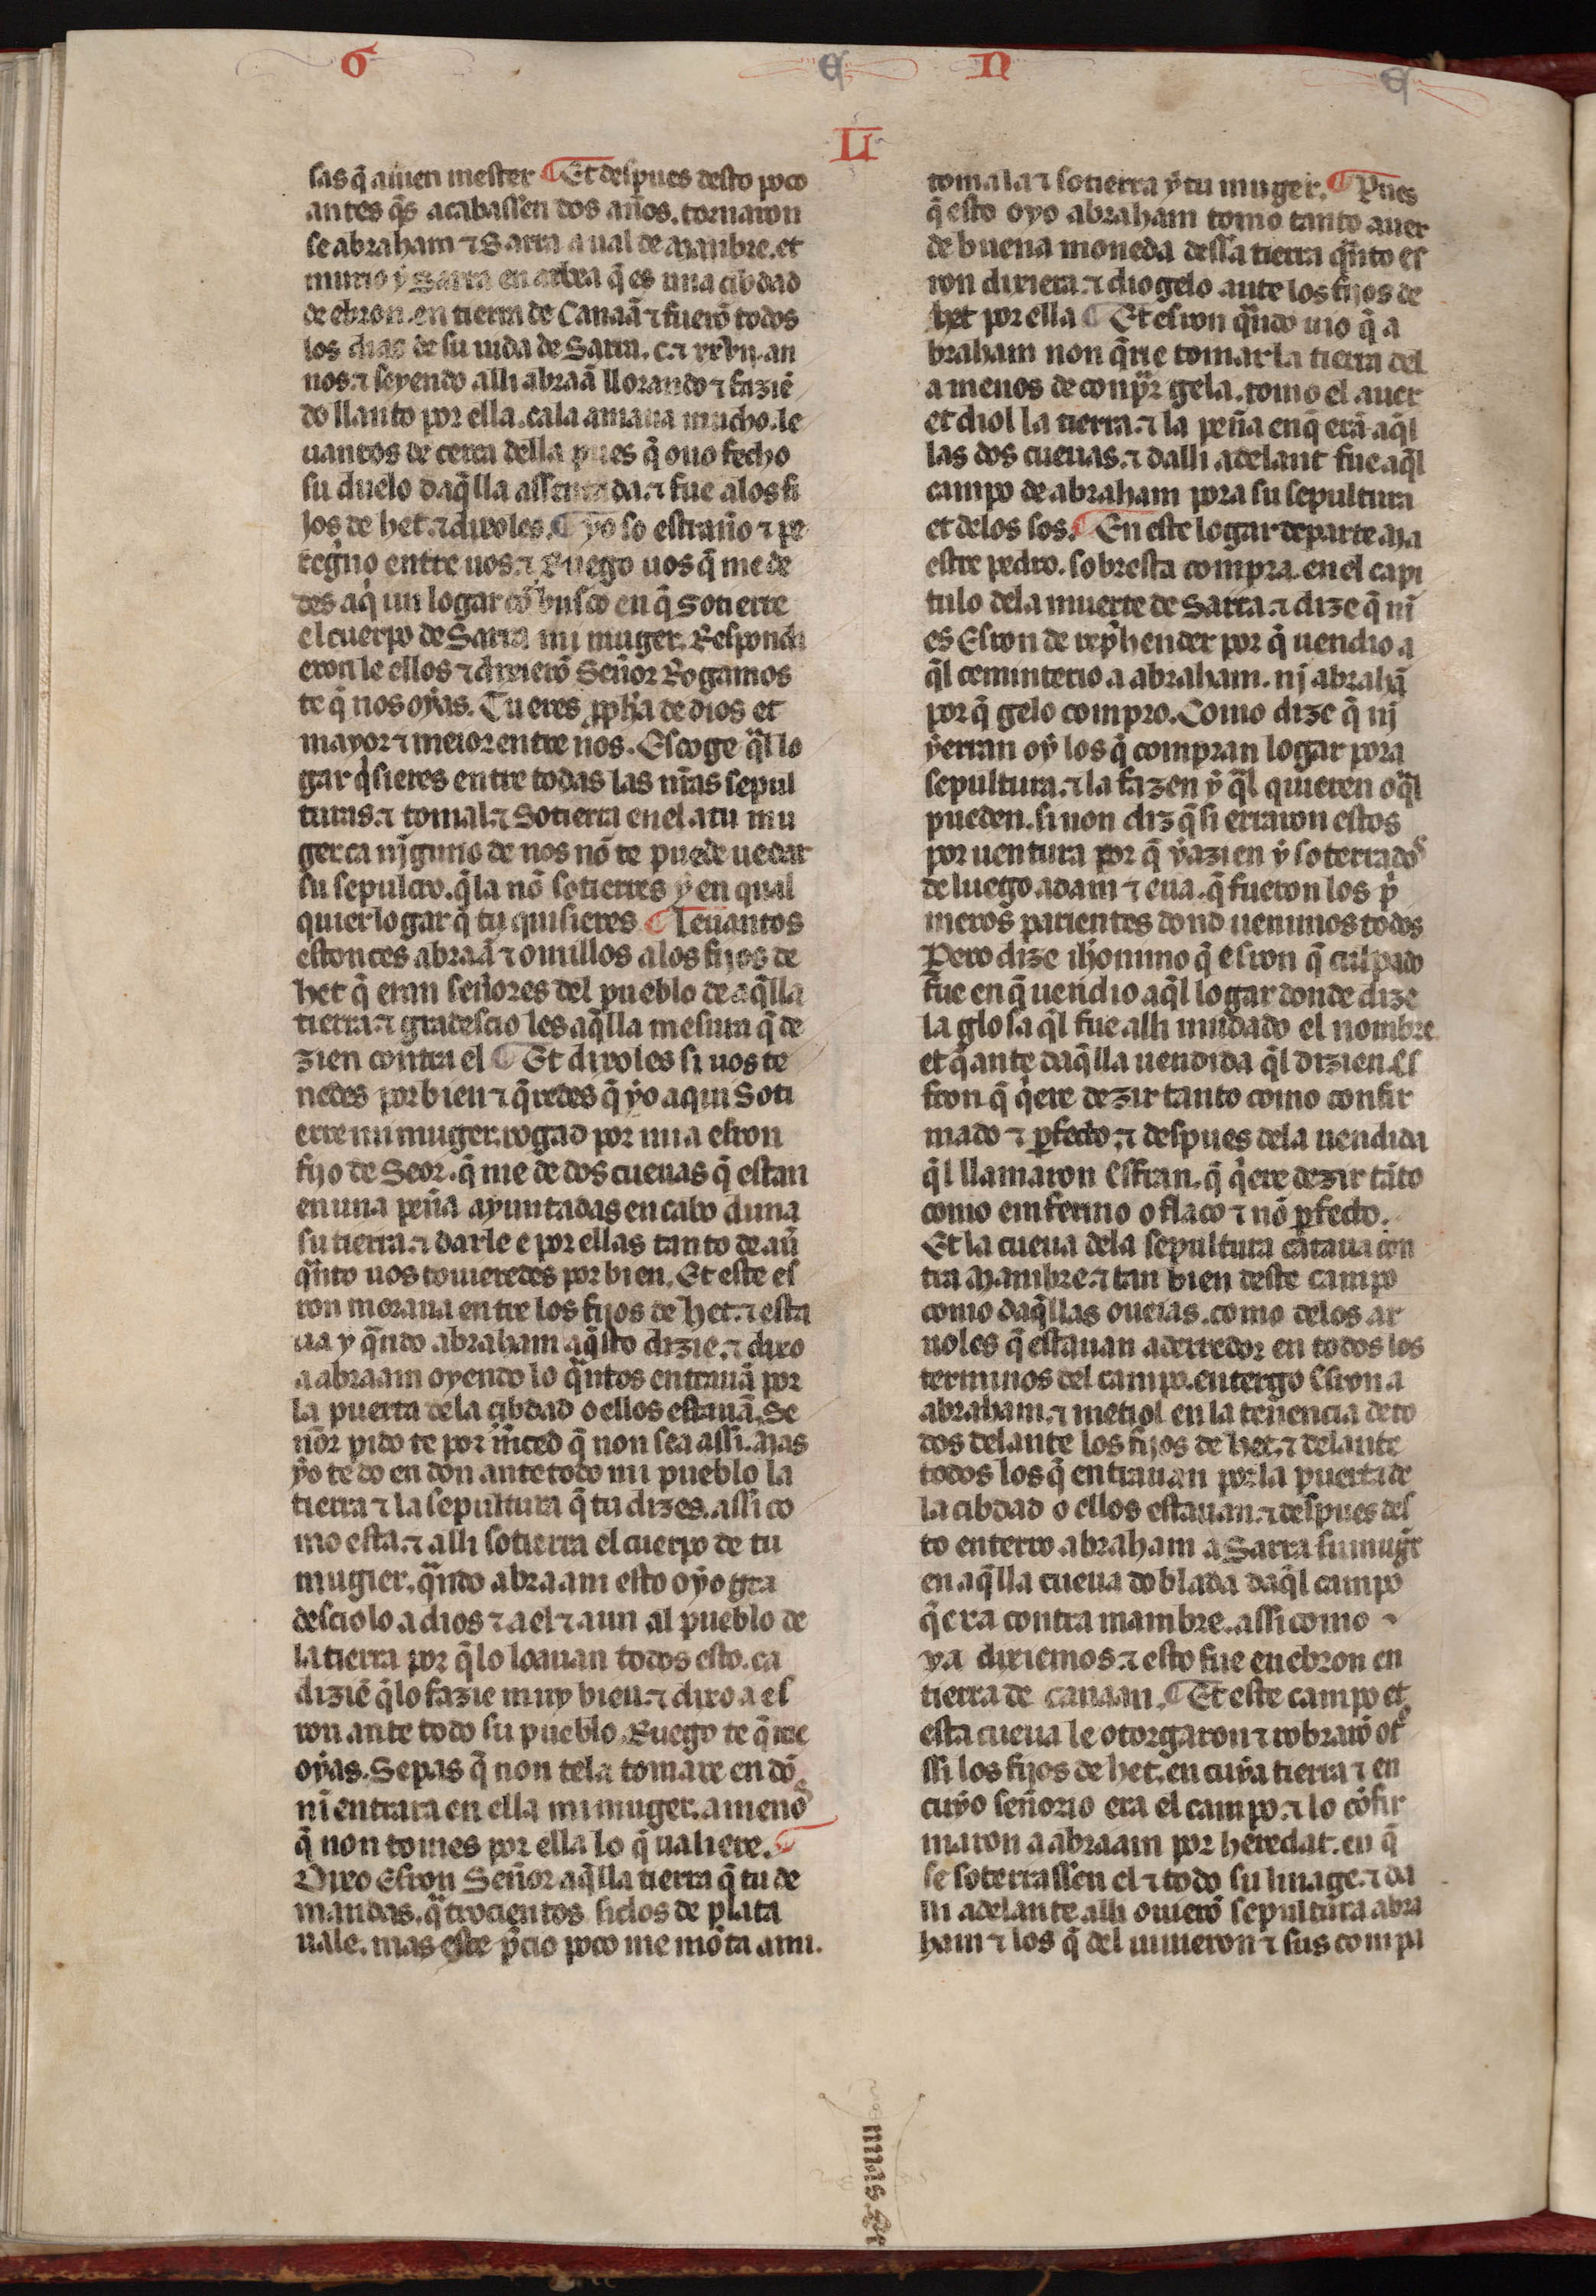 G E N E
LI
sas q̃ auien mester ¶ Et despues desto poco
antes q̃s acabassen dos años. tornaron
se abraham ⁊ Sarra a ual de Mambre. et
murio y Sarra en arbea q̃ es una cibdad
de ebron. en tierra de Canaã ⁊ fuerõ todos
los dias de su uida de Sarra. c. ⁊ xxvij. an
nos. ⁊ seyendo alli abraã llorando ⁊ fazie͂
do llanto por ella. ca la amaua mucho. le
uantos de cerca della pues q̃ ouo fecho
su duelo daq̃lla assentada. ⁊ fue a los fi
jos de het. ⁊ dixoles. ¶ yo so estraño ⁊ pe
regrino entre uos. ⁊ Ruego uos q̃ me de
des aq̍ un logar cõ busco en q̃ sotierre
el cuerpo de Sarra mi muger. Respondi
eron le ellos ⁊ dixierõ Señor Rogamos
te q̃ nos oyas. Tu eres ꝓpħa de dios et
mayor ⁊ meior entre nos. Escoge q̃l lo
gar q̍sieres entre todas las nr̃as sepul
turas. ⁊ tomal. ⁊ Sotierra en el a tu mu
ger. ca nj̃guno de nos nõ te puede uedar
su sepulcro. q̃ la nõ sotierres y en qual
quier logar q̃ tu quisieres ¶ Leuantos
estonces abraã ⁊ omillos a los fijos de
het q̃ eran señores del pueblo de aq̃lla
tierra. ⁊ gradescio les aq̃lla mesura q̃ de
zien contra el ¶ Et dixoles si uos te
nedes por bien ⁊ q̃redes q̃ yo aqui Soti
erre mi muger. rogad por mi a efron
fijo de Seor. q̃ me de dos cueuas q̃ estan
en una peña ayuntadas en cabo duna
su tierra. ⁊ darle e por ellas tanto de au͂
q̃nto uos touieredes por bien. Et este ef
ron moraua entre los fijos de het. ⁊ esta
ua y q̃ndo abraham aq̃sto dizie. ⁊ dixo
a abraam oyendo lo q̃ntos entrauã por
la puerta dela cibdad o ellos estauã. Se
ñor pido te por m̃ced q̃ non sea assi. Mas
yo te do en don ante todo mi pueblo la
tierra ⁊ la sepultura q̃ tu dizes. assi co
mo esta. ⁊ alli sotierra el cuerpo de tu
mugier. q̃ndo abraam esto oyo gra
desciolo a dios ⁊ a el ⁊ aun al pueblo de
la tierra por q̃ lo loauan todos esto. ca
dizie͂ q̃lo fazie muy bien. ⁊ dixo a ef
ron ante todo su pueblo. Ruego te q̃ me
oyas. Sepas q̃ non tela tomare en dõ
ni entrara en ella mi muger. a menoˢ
q̃ non tomes por ella lo q̃ ualiere. ¶
Dixo Efron Señor aq̃lla tierra q̃ tu de
mandas. q̃trocientos siclos de plata
uale. mas este p̍cio poco me mõta a mi.
tomala ⁊ sotierra y tu muger. ¶ Pues
q̃ esto oyo abraham tomo tanto auer
de buena moneda dessa tierra q̃nto ef
ron dixiera. ⁊ diogelo ante los fijos de
het por ella ¶ Et efron q̃ndo uio q̃ a
braham non q̃rie tomar la tierra del
a menos de conpr̃ gela. tomo el auer
et diol la tierra. ⁊ la peña en q̃ erã aq̃l
las dos cueuas. ⁊ dalli adelant fue aq̃l
campo de abraham pora su sepultura
et delos sos. ¶ En este logar departe Ma
estre pedro. sobresta compra. en el capi
tulo dela muerte de Sarra. ⁊ dize q̃ ni
es Efron de rep̍hender por q̃ uendio a
q̃l ceminterio a abraham. nj abrahã
por q̃ gelo compro. Como dize q̃ nj
yerran oy los q̃ compran logar pora
sepultura. ⁊ la fazen y q̃l quieren o q̃l
pueden. si non diz q̃ si erraron estos
por uentura por q̃ yazien y soterradoˢ
de luego. adam ⁊ eua. q̃ fueron los p̍
meros parientes dond uenimos todos
Pero dize iħonimo q̃ efron q̃ culpado
fue en q̃ uendio aq̃l logar donde dize
la glosa q̃l fue alli mudado el nombre
et q̃ ante daq̃lla uendida q̃l dizien Ef
fron q̃ q̍ere dezir tanto como confir
mado ⁊ ꝑfecto. ⁊ despues dela uendida
q̃l llamaron Effran. q̃ q̍ere dezir tãto
como enfermo o flaco ⁊ nõ ꝑfecto.
Et la cueua dela sepultura cataua con
tra Mambre. ⁊ tan bien deste campo
como daq̃llas oueias. como delos ar
uoles q̃ estauan aderredor en todos los
terminos del campo. entergo Efron a
abraham. ⁊ metiol en la tenencia de to
dos delante los fijos de het. ⁊ delante
todos los q̃ entrauan por la puerta de
la cibdad o ellos estauan. ⁊ despues des
to enterro abraham a Sarra su mugr̃
en aq̃lla cueua doblada daq̃l campo
q̃ era contra mambre. assi como
ya dixiemos. ⁊ esto fue en ebron en
tierra de canaan. ¶ Et este campo et
esta cueua le otorgaron ⁊ robrarõ ot̊
ssi los fijos de het. en cuya tierra ⁊ en
cuyo señorio era el campo. ⁊ lo cõfir
maron a abraam por heredat. en q̃
se soterrassen el ⁊ todo su linage. ⁊ da
lli adelante alli ouierõ sepultura abra
ham ⁊ los q̃ del uinieron ⁊ sus compa